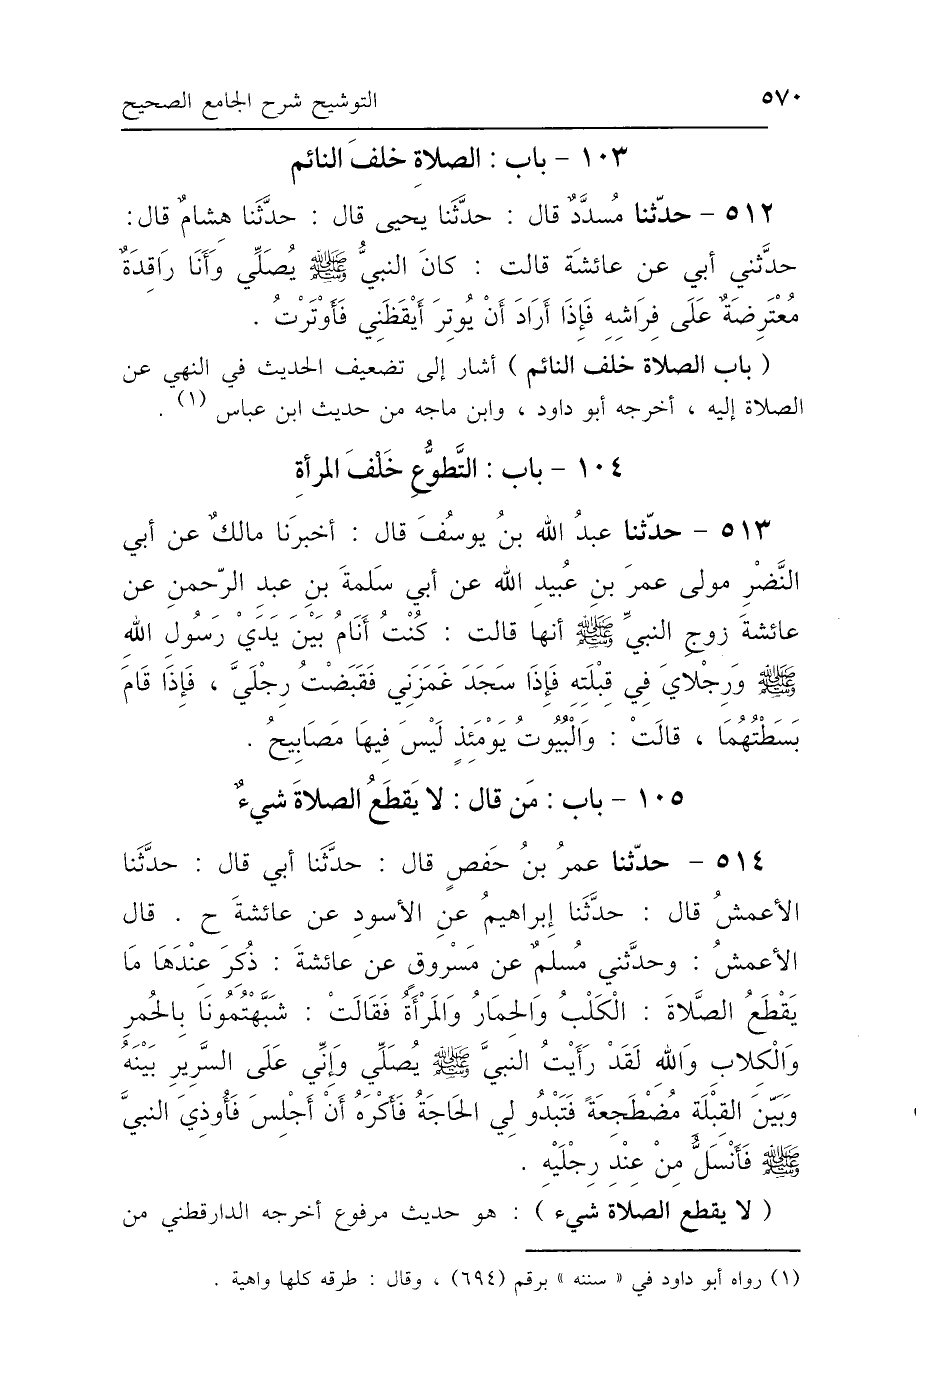 ٥٧٠ التوشيح شرح الجامع الصحيح
١٠٣ - باب : الصلاة خلفَ النائمِ
٥١٢ - حدّثنا مُسدَّدٌ قال : حدَّثَنا يحيى قال : حدَّثَنا هشامٌ قال :
حدَّثني أبي عن عائشة قالت : كانَ النبيُّ ﷺ يُصَلِّي وَأَنَا رَاقِدَةٌ
مُعْتَرِضَةٌ عَلَى فِرَاشِهِ فَإِذَا أَرَادَ أَنْ يُوتِرَ أَيْقَظَنِي فَأَوْتَرْتُ .
( باب الصلاة خلف النائم ) أشار إلى تضعيف الحديث في النهي عن
الصلاة إليه ، أخرجه أبو داود ، وابن ماجه من حديث ابن عباس (١) .
١٠٤ - باب : التَّطوُّعِ خَلْفَ المرأةِ
٥١٣ - حدّثنا عبدُ الله بنُ يوسُفَ قال : أخبرَنا مالكٌ عن أبي
النَّضْرِ مولى عمرَ بنِ عُبيدِ الله عن أبي سَلَمةَ بنِ عبدِ الرّحمنِ عن
عائشةَ زوجِ النبيِّ ﷺ أنها قالت : كُنْتُ أَنَامُ بَيْنَ يَدَيْ رَسُولِ الله
ﷺ وَرِجْلايَ فِي قِبْلَتِهِ فَإِذَا سَجَدَ غَمَزَنِي فَقَبَضْتُ رِجْلَيَّ ، فَإِذَا قَامَ
بَسَطْتُهُمَا ، قالَتْ : وَالْبُيُوتُ يَوْمَئِذٍ لَيْسَ فِيهَا مَصَابِيحُ .
١٠٥ - باب : مَن قال : لا يَقطَعُ الصلاةَ شيءٌ
٥١٤ - حدّثنا عمرُ بنُ حَفصٍ قال : حدَّثَنا أبي قال : حدَّثَنا
الأعمشُ قال : حدَّثَنا إبراهيمُ عنِ الأسودِ عن عائشةَ ح . قال
الأعمشُ : وحدَّثني مُسلمٌ عن مَسْروقٍ عن عائشةَ : ذُكِرَ عِنْدَهَا مَا
يَقْطَعُ الصَّلاةَ : الْكَلْبُ وَالحِمَارُ وَالمَرْأَةُ فَقَالَتْ : شَبَّهْتُمُونَا بِالحُمُرِ
وَالْكِلابِ وَالله لَقَدْ رَأَيْتُ النبيَّ ﷺ يُصَلِّي وَإِنِّي عَلَى السَّرِيرِ بَيْنَهُ
وَبَيْنَ القِبْلَةِ مُضْطَجِعَةً فَتَبْدُو لِي الحَاجَةُ فَأَكْرَهُ أَنْ أَجْلِسَ فَأُوذِيَ النبيَّ
ﷺ فَأَنْسَلُّ مِنْ عِنْدِ رِجْلَيْهِ .
( لا يقطع الصلاة شيء ) : هو حديث مرفوع أخرجه الدارقطني من
(١) رواه أبو داود في « سننه » برقم (٦٩٤) ، وقال : طرقه كلها واهية .